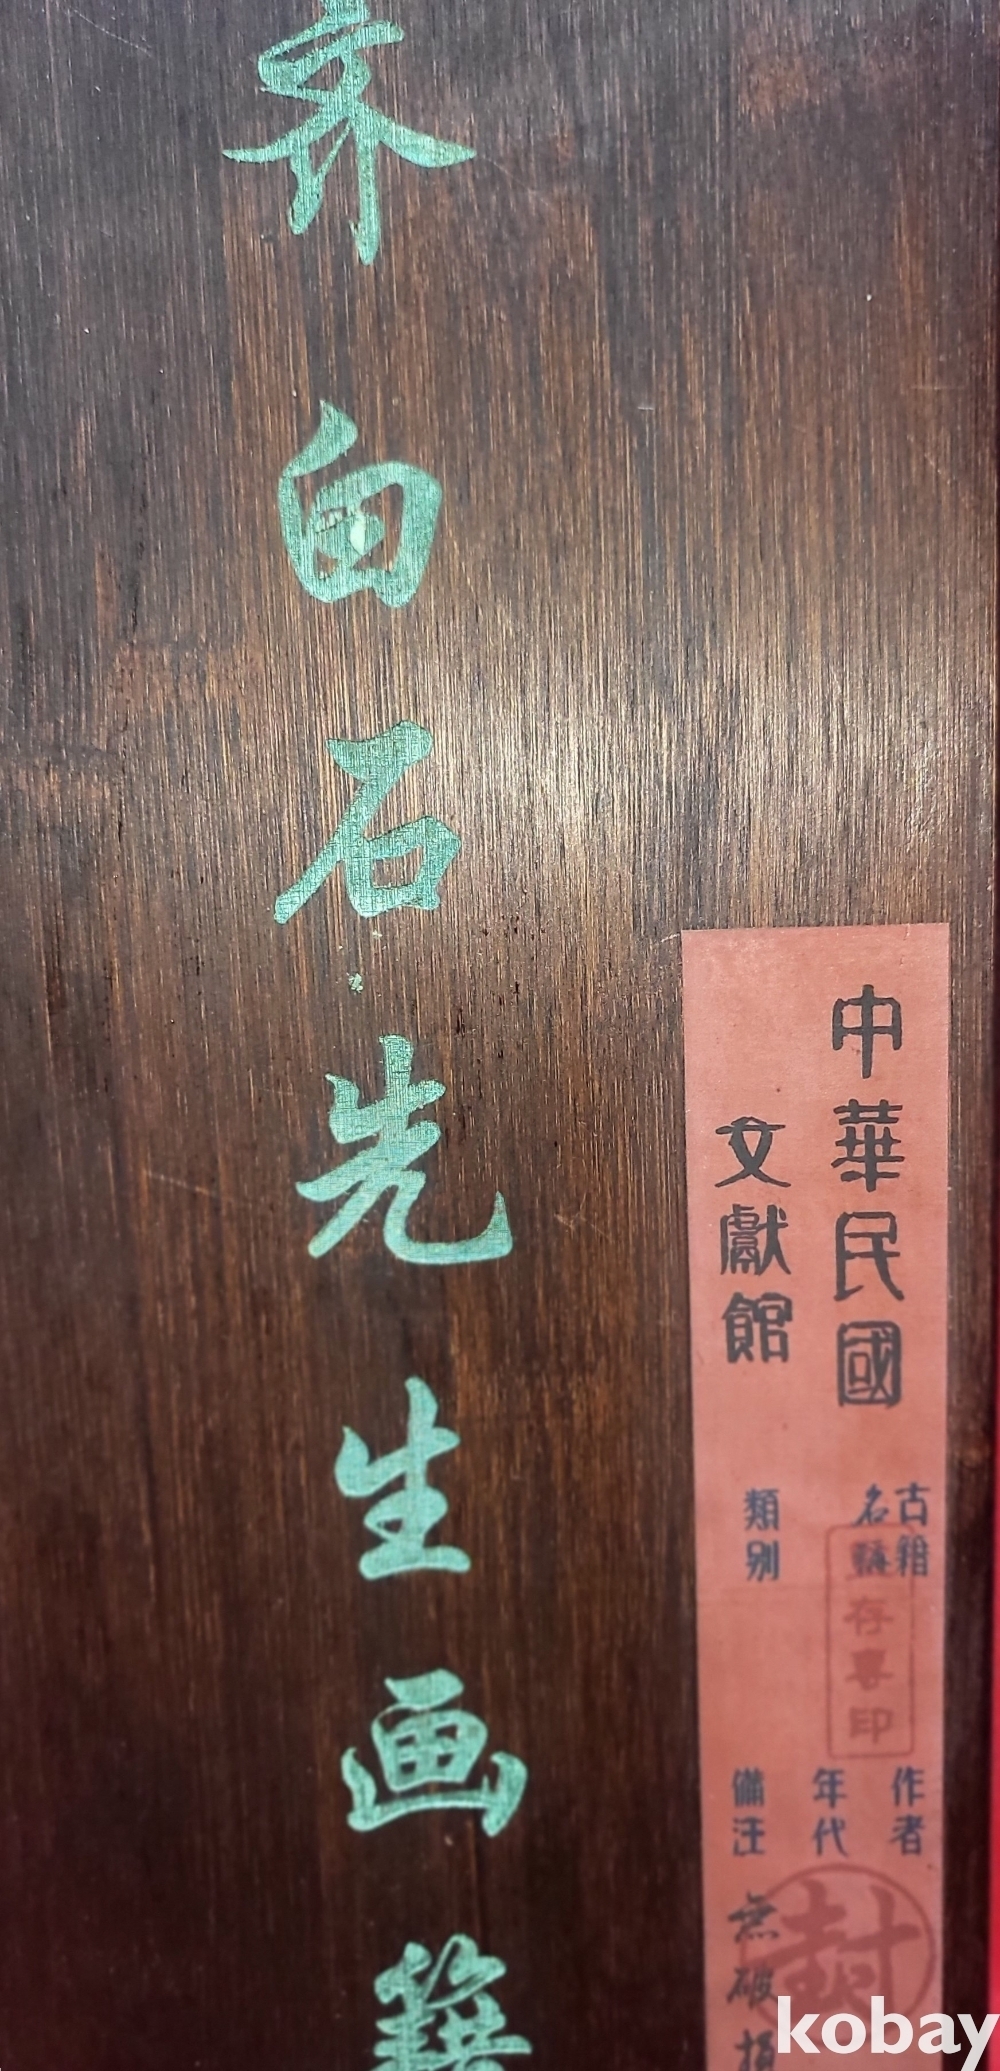 齐白石先生画籍
中華民國
文獻館
古籍
名稱
類別
存專印
作者
年代
備注
無破損
封
kobay